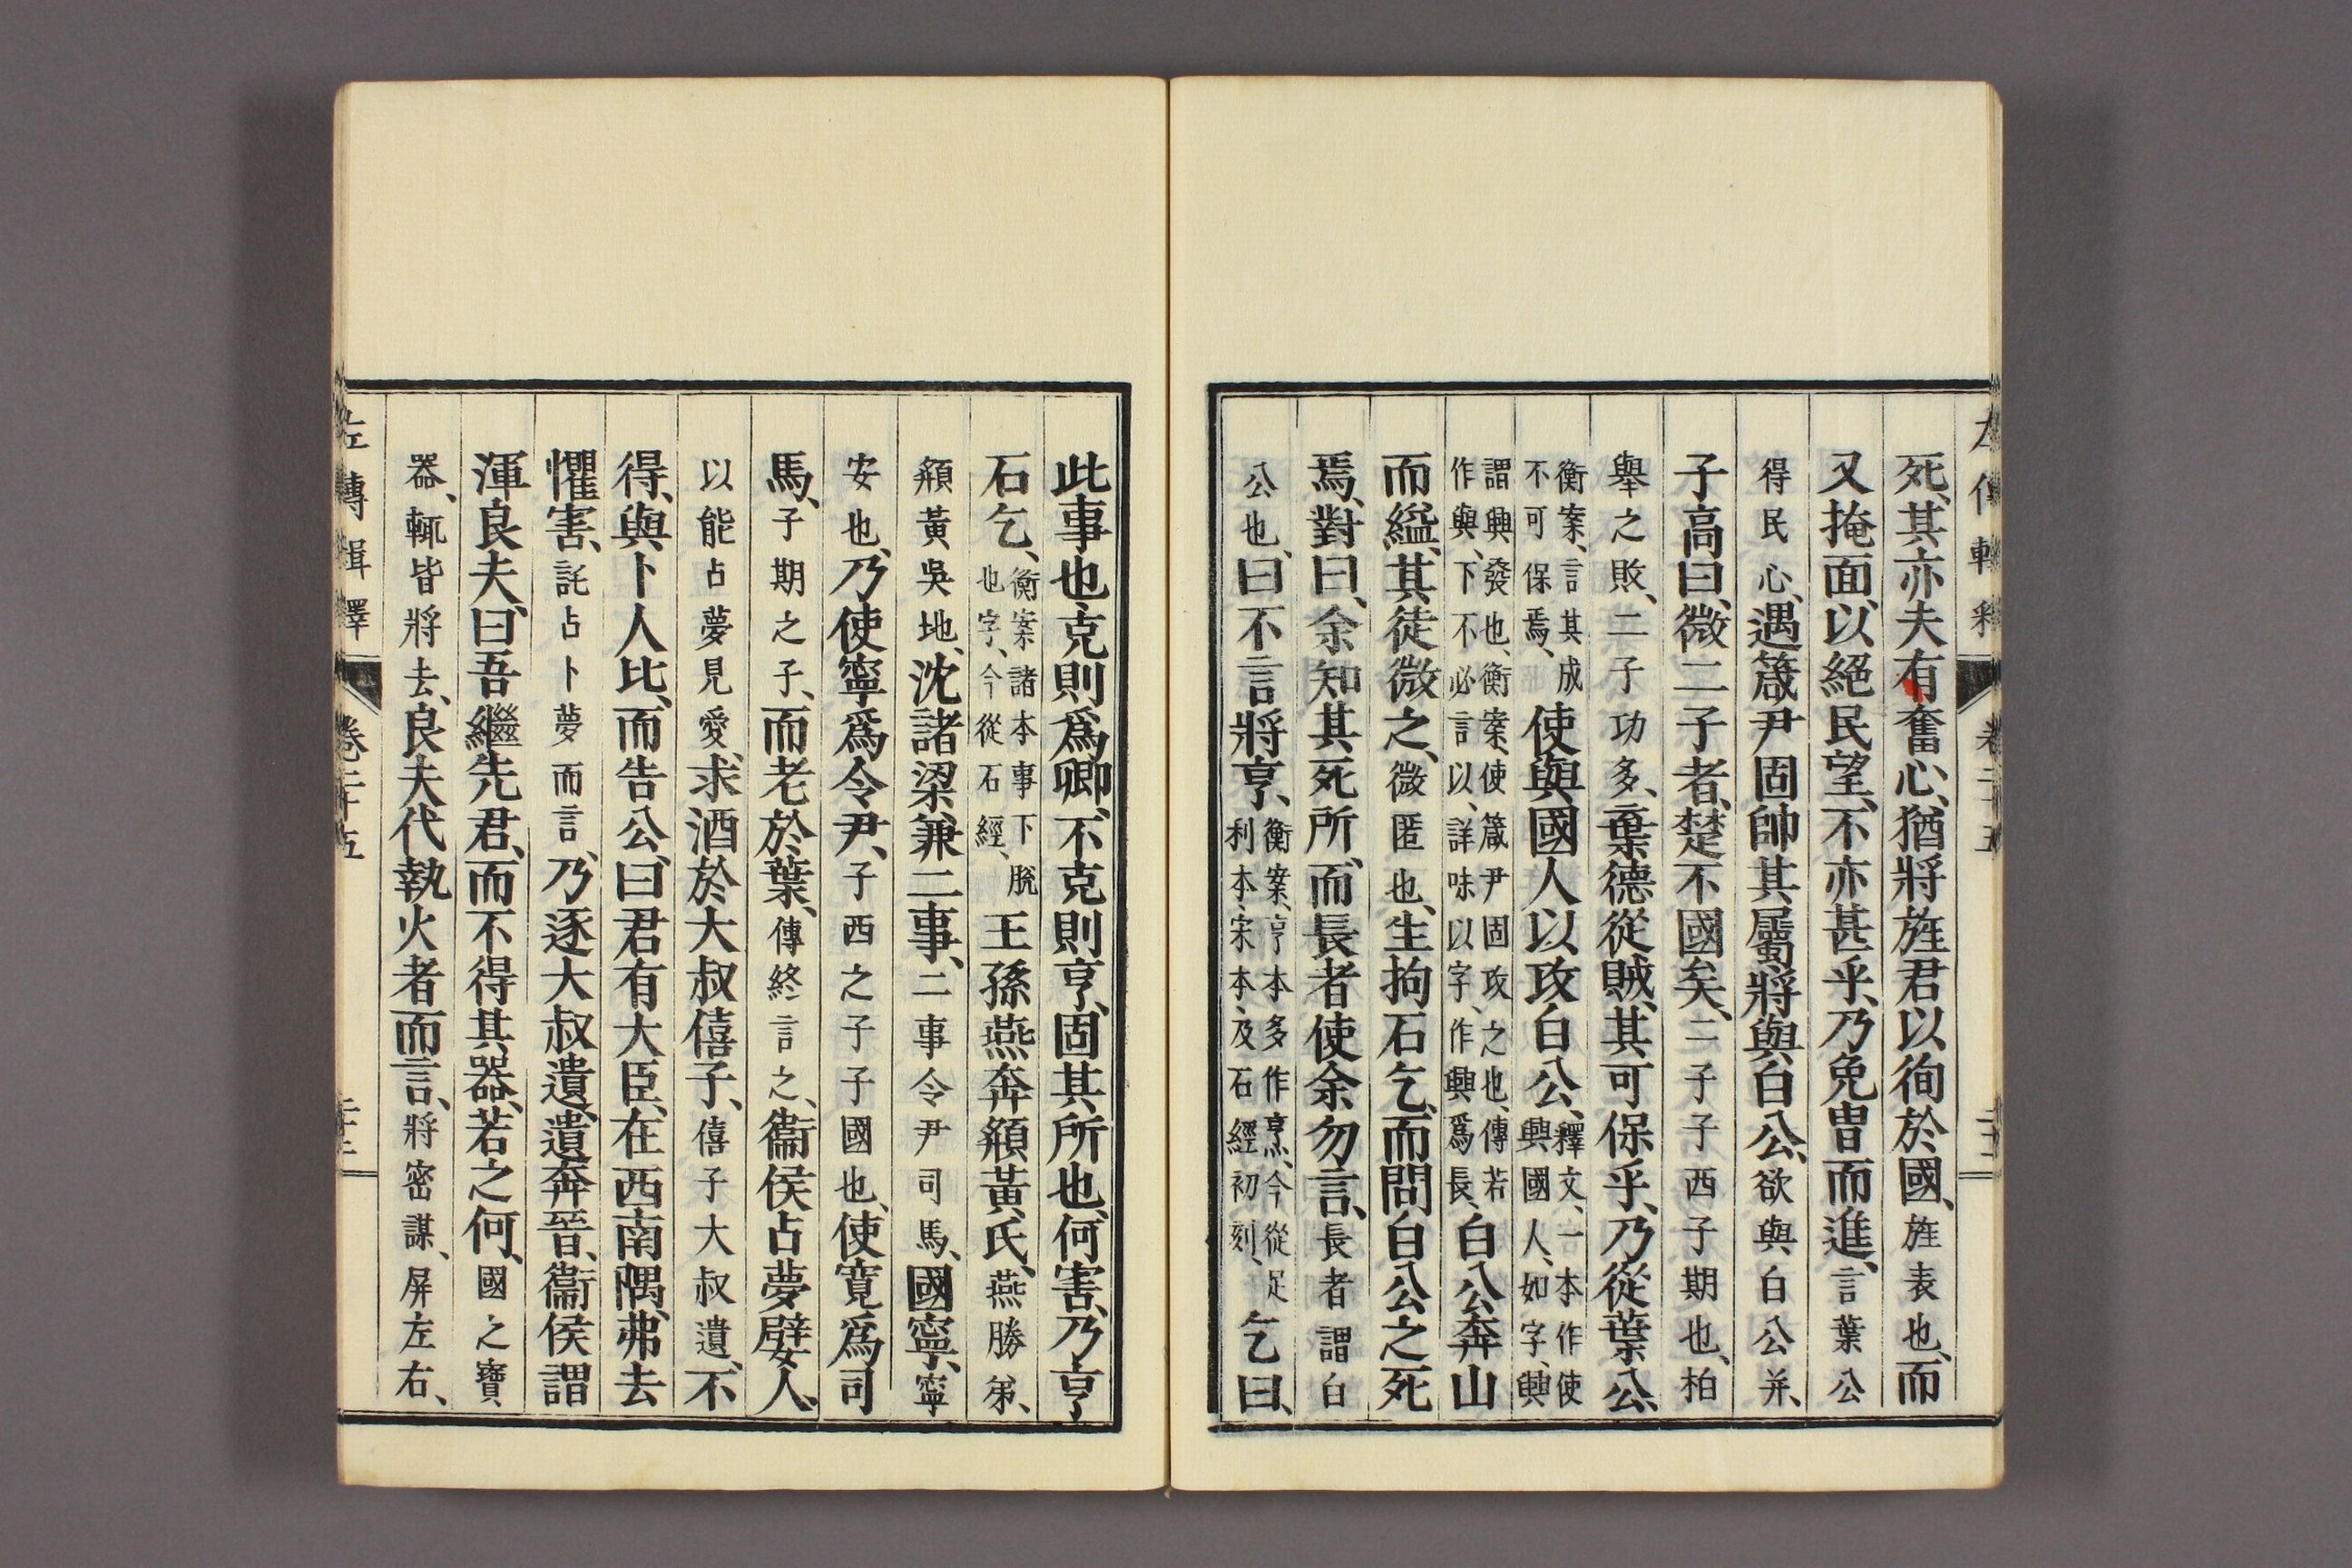 死、其亦夫有奮心、猶將旌君以徇於國、旌表也、而
又掩面、以絕民望、不亦甚乎、乃免冑而進、言葉公
得民心、遇箴尹固帥其屬、將與白公、欲與白公并、
子高曰、微二子者、楚不國矣、二子子西子期也、柏
舉之敗、二子功多、棄德從賊、其可保乎、乃從葉公、
衡案、言其成不可保焉、使與國人以攻白公、釋文、一本作使與國人、如字、與
謂興發也、衡案、使箴尹固攻之也、傳若作與、下不必言以、詳味以字、作興爲長、白公奔山
而縊、其徒微之、微匿也、生拘石乞、而問白公之死
焉、對曰、余知其死所、而長者使余勿言、長者謂白
公也、曰不言將亨、衡案、亨本多作烹、今從足利本、宋本、及石經初刻、乞曰、
此事也克則爲卿、不克則亨、固其所也、何害、乃亨
石乞、衡案諸本事下脫也字、今從石經、王孫燕奔頯黃氏、燕勝弟、
頯黃吳地、沈諸梁兼二事、二事令尹司馬、國寧、寧
安也、乃使寧爲令尹、子西之子子國也、使寬爲司
馬、子期之子、而老於葉、傳終言之、衞侯占夢嬖人、
以能占夢見愛、求酒於大叔僖子、僖子大叔遺、不
得、與卜人比、而告公、曰君有大臣、在西南隅、弗去
懼害、託占卜夢而言、乃逐大叔遺、遺奔晉、衞侯謂
渾良夫曰、吾繼先君、而不得其器、若之何、國之寶
器、輒皆將去、良夫代執火者而言、將密謀、屏左右、
左傳輯釋 卷二十五